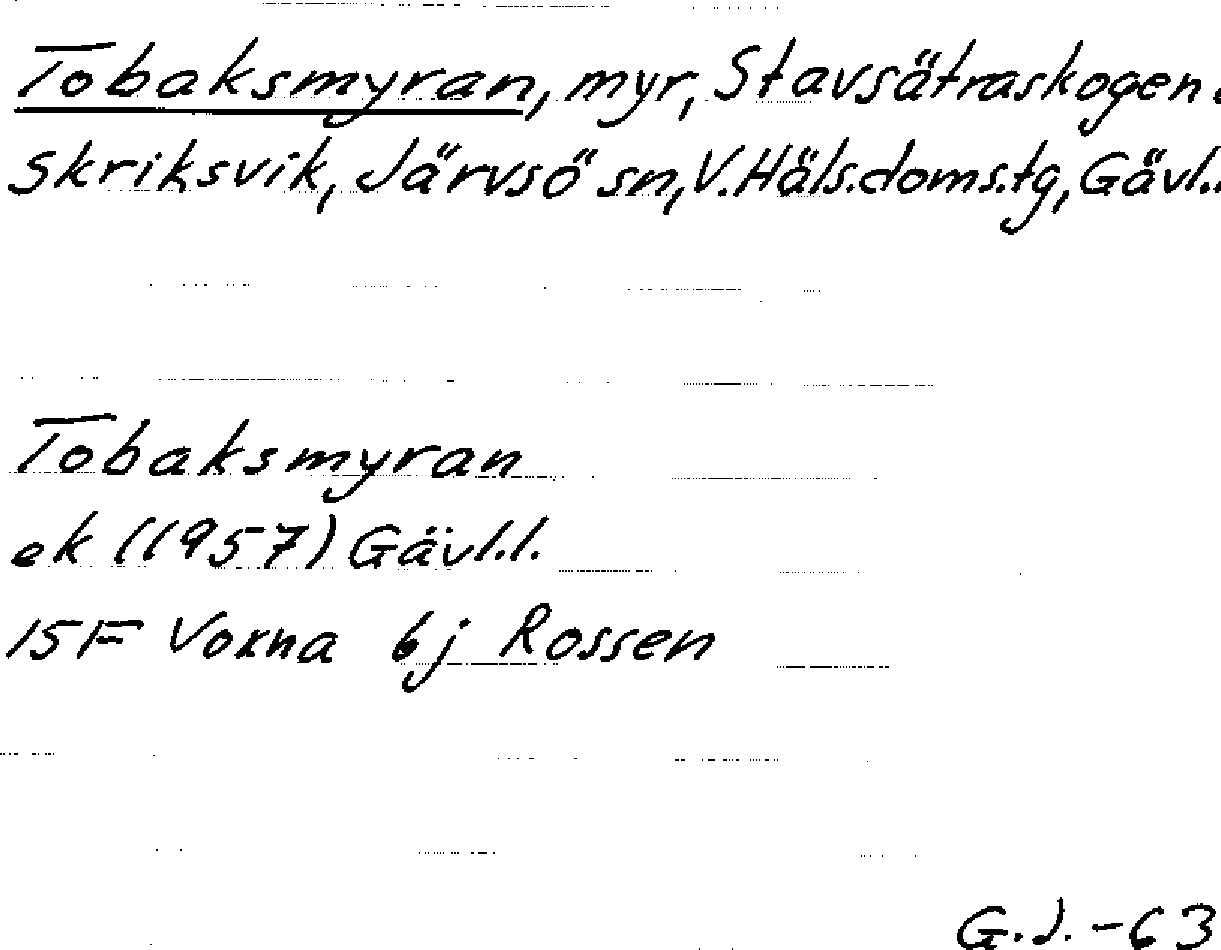 Tobaksmyran, myr, Stavsätraskogen.
Skriksvik, Järvsö sn, V.Häls.doms.tg, Gävl.l.
Tobaksmyran
ek (1957) Gävl.l.
15F Voxna 6j Rossen
G.J. -63